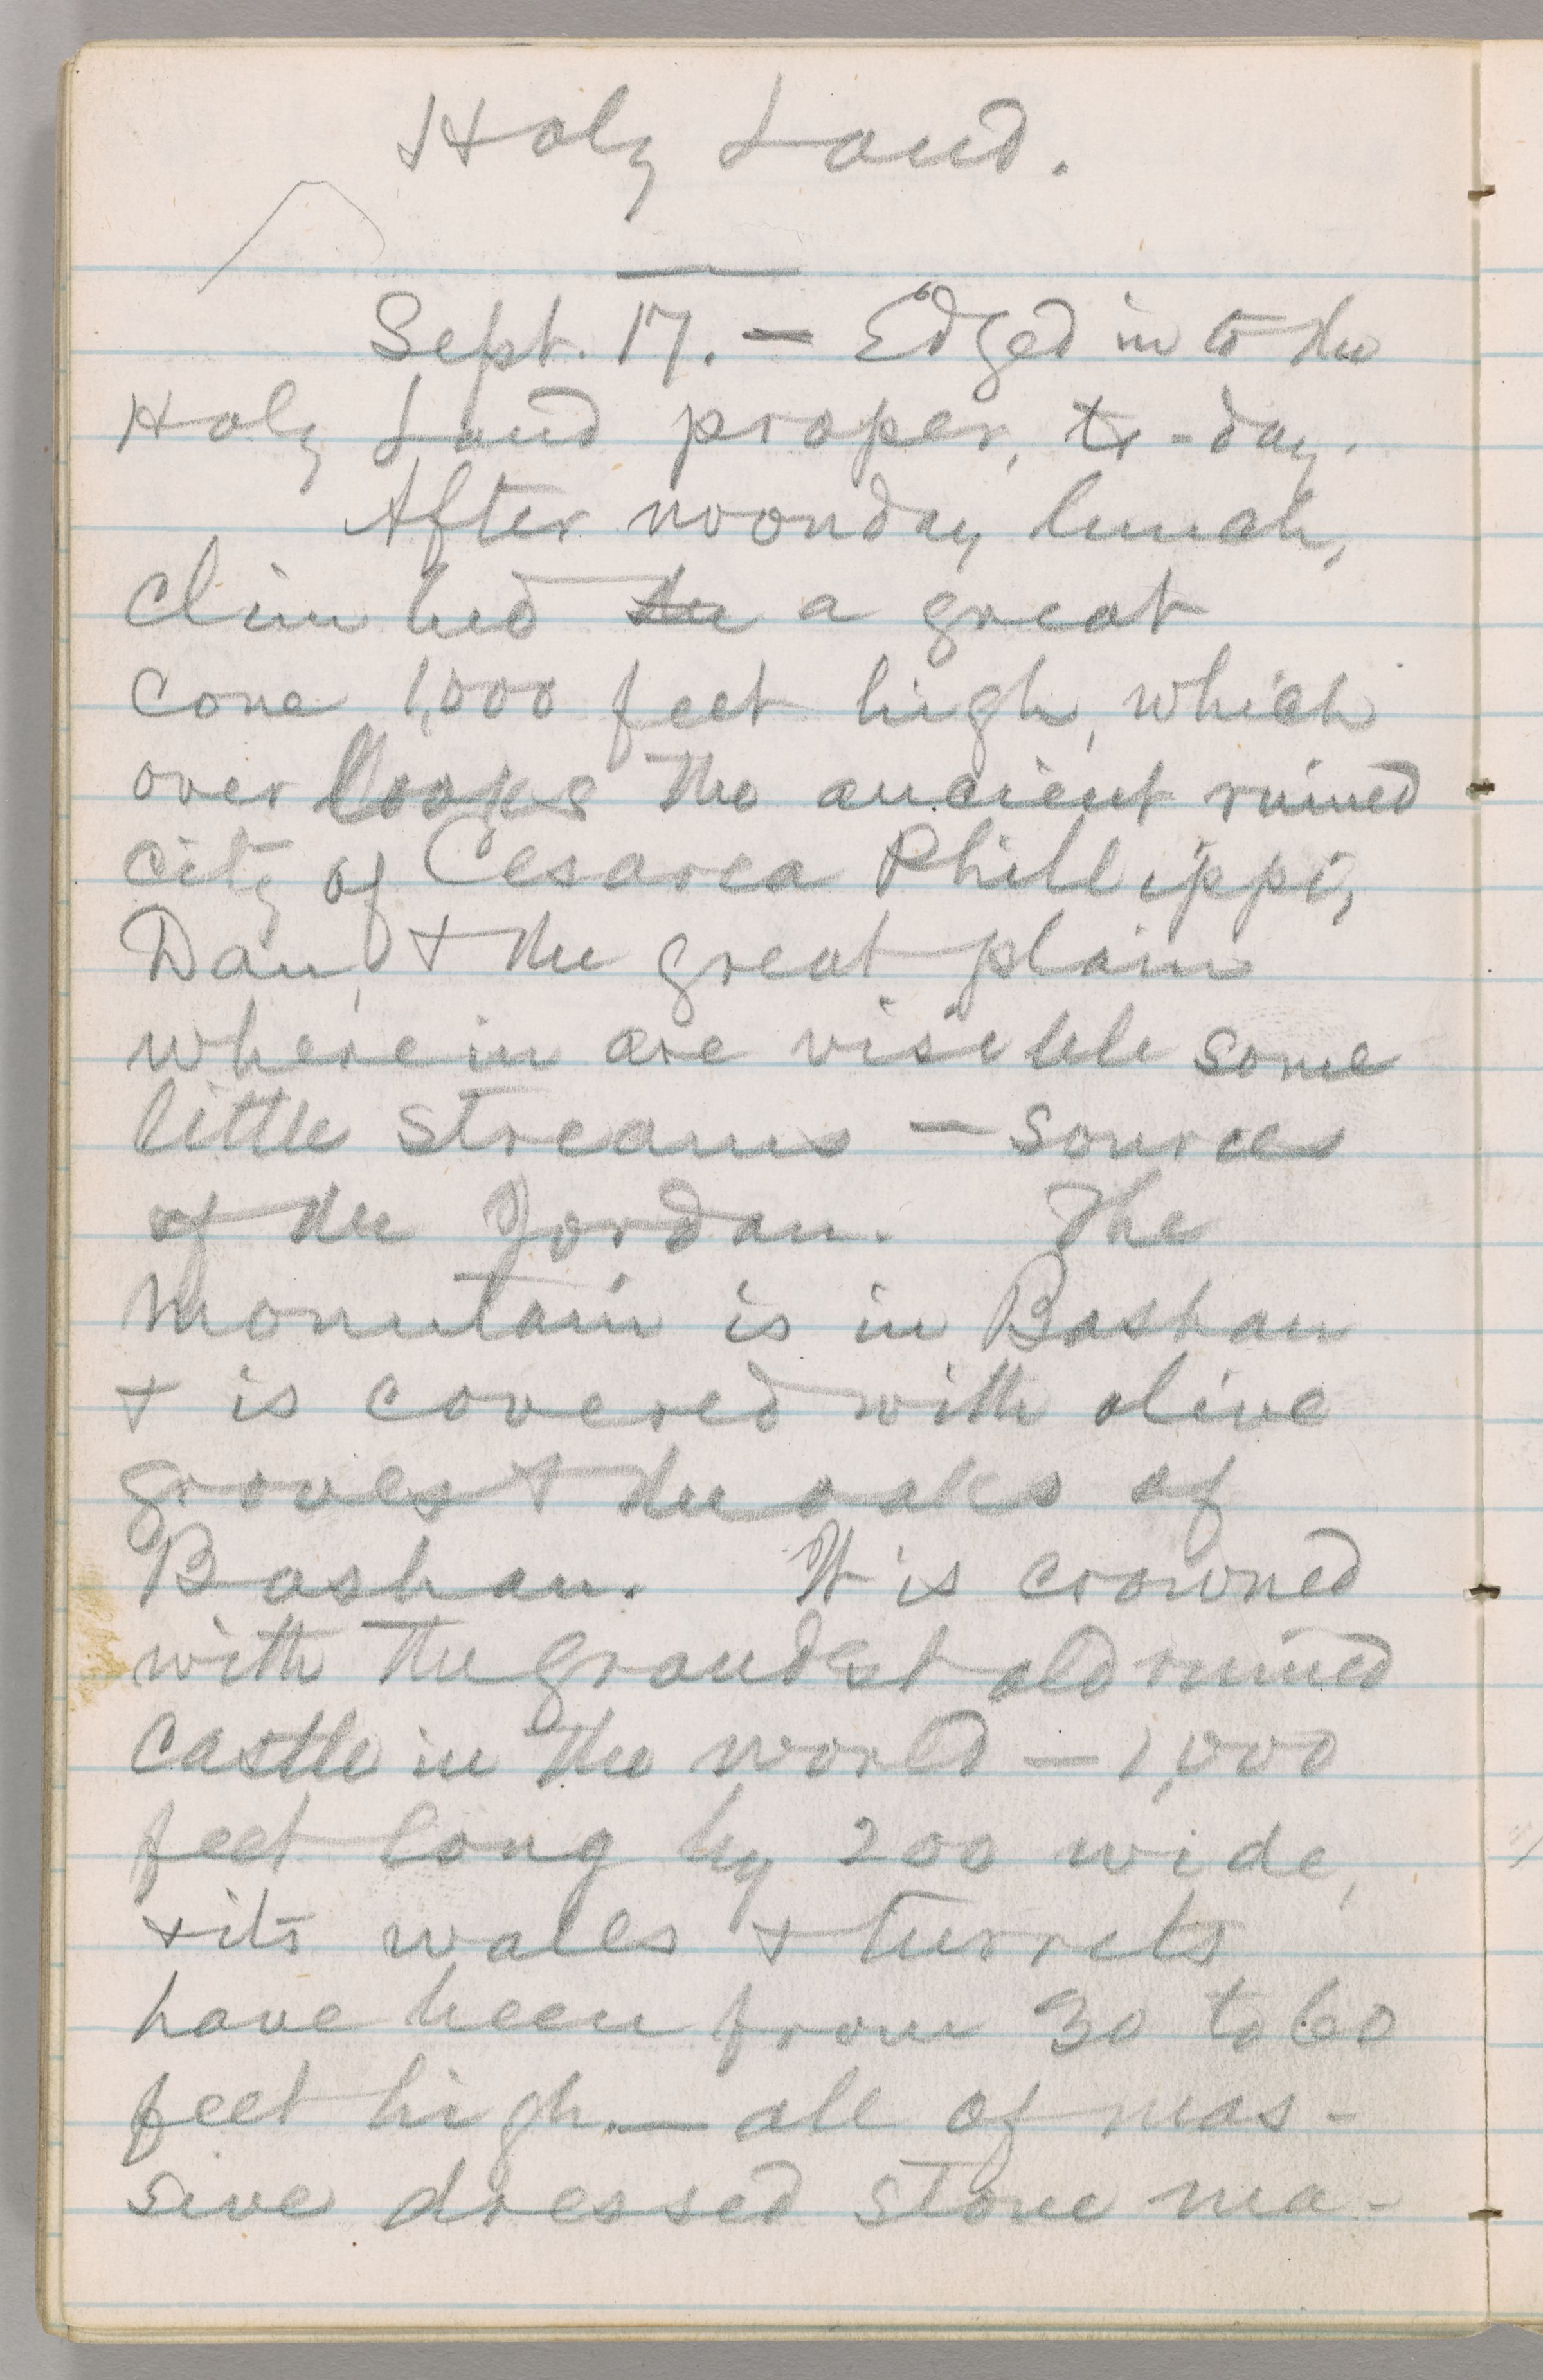 Holy Land.
Sept. 17. — Edged in to the
Holy Land proper, to-day.
After noonday lunch,
climbed the a great
cone 1,000 feet high, which
overlooks the ancient ruined
city of Cesarea Phillippi,
Dan, & the great plain
wherein are visible some
little streams — sources
of the Jordan. The
mountain is in Bashan
& is covered with olive
groves & the oaks of
Bashan. It is crowned
with the grandest old ruined
castle in the world — 1,000
feet long by 200 wide,
& its walls & turrets
have been from 30 to 60
feet high. — all of mas-
sive dressed stone ma-